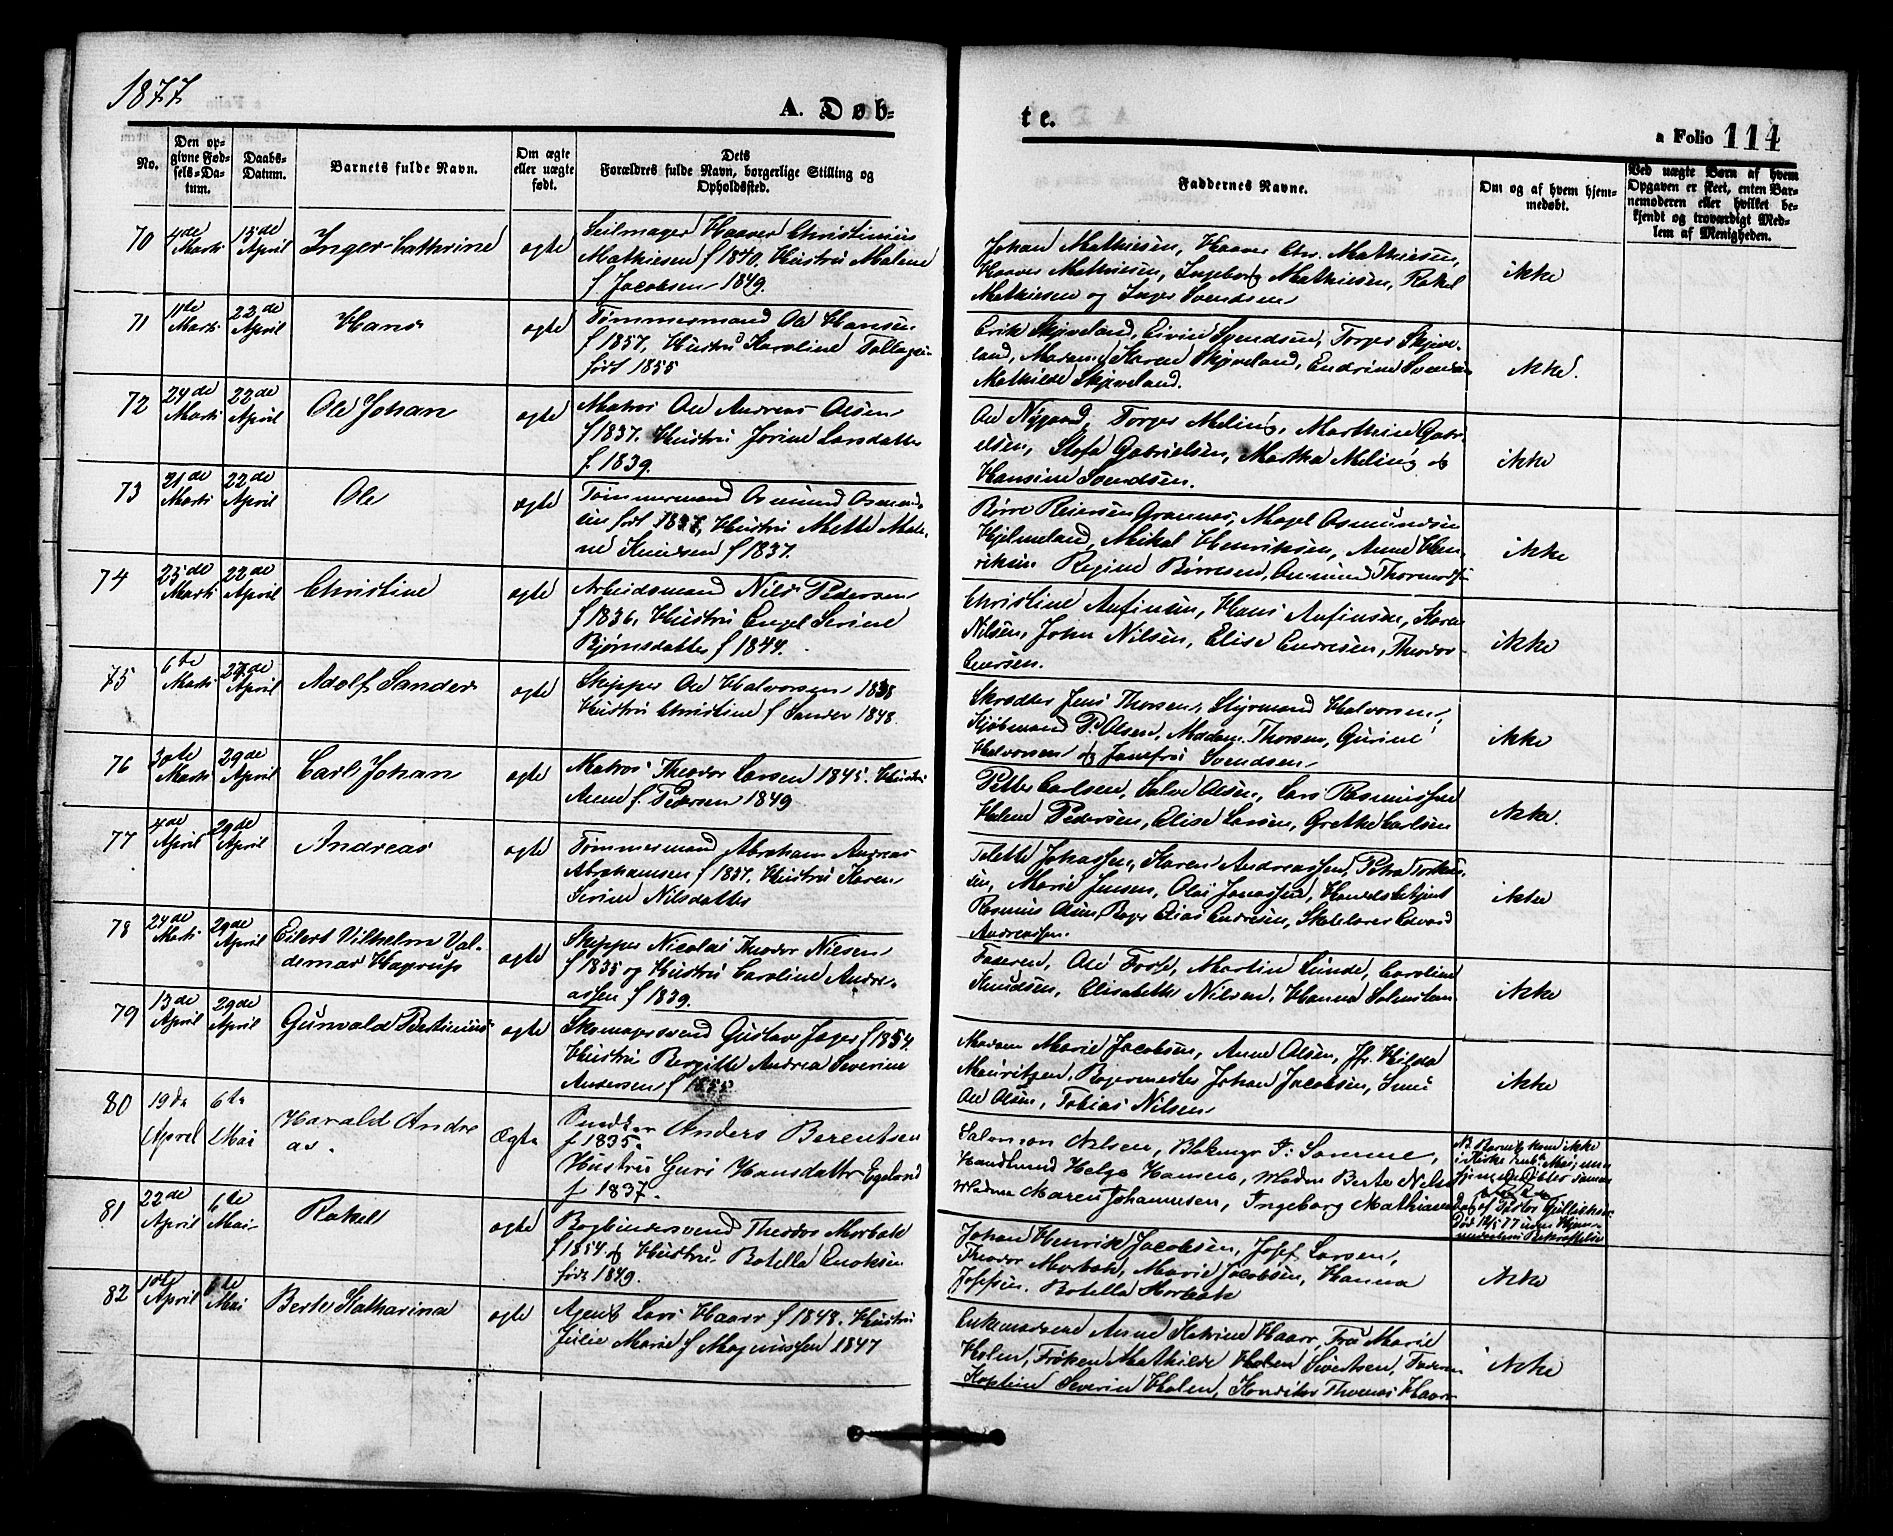 1877
A. Døb-
te.
a Folio 114
No.
Den op-
givne Fød-
sels-Da-
tum.
Daabs-
Datum.
Barnets fulde Navn.
Om ægte
eller uægte
født.
Dets
Forældres fulde Navn, borgerlige Stilling og
Opholdssted.
Faddernes Navne.
Om og af hvem hjem-
medøbt.
Ved uægte Børn af hvem
Opgaven er skeet, enten Bar-
nemoderen eller hvilket be-
kjendt og troværdigt Med-
lem af Menigheden.
70
Marts
15de
April
Inger Cathrine
ægte
Seilmager Haaver Christinius
Mathiesen f 1840. Hustru Malene
f. Jacobsen 1849.
Johan Mathiesen, Haaver Chr. Mathiesen,
Haaver Mathiesen, Ingeborg Mathiesen, Rakel
Mathiesen og Inger Svendsen
ikke
71
11te
Marts
22de
April
Hans
ægte
Tømmermand Ole Hansen
f 1857, Hustru Karoline
født 1855
Erik Skjæveland, Eivin Svendsen, Torger Skjæve-
land, Madam Karen Skjæveland, Endrine Svendsen
Mathilde Skjæveland.
ikke.
72
24de
Marts
22de
April
Ole Johan
ægte
Matros Ole Andreas Olsen
f 1837. Hustru Jorine Larsdatter
f. 1839.
Ole Nygaard, Torger Meling, Marthine Gabri-
elsen, Gabrielsen, Martha Meling og
Hansine Svendsen.
ikke
73
21de
Marts
22de
April
Ole
ægte
Tømmermand Osmund Osmund-
sen født 1837, Hustru Mette Male-
ne Knudsen f 1837.
Børre Reiersen Grannes, Osmundsen
Hjelmeland, Mikal Henriksen, Anne Hen-
riksen Regine Børresen,
ikke
74
25de
Marts
22de
April
Christine
ægte
Arbeidsmand Nils Pedersen
f 1836, Hustru Engel Serine
Bjørnsdatter f 1844.
Christine Aufinsen, Hans Aufinsen, Karen
Nilsen, John Nilsen, Elise Endresen, Theodor
Enersen.
ikke
75
6te
Marts
April
Adolf Sander
ægte
Skipper Ole Halvorsen 1838
Hustru Christine f Sander 1848.
Skrædder Jens Thorsen, Styrmand Halvorsen,
Kjøbmand P. Olsen, Madam Thorsen, Gurine
Halvorsen og Jomfru Svendsen
ikke
76
30te
Marts
29de
April
Carl Johan
ægte
Matros Theodor Larsen 1845. Hustru
Anne f. Pedersen 1849
Petter Carlsen, Salve Olsen, Lars Rasmussen
Helene Pedersen, Elise Larsen, Grethe Carlsen
ikke.
77
4de
April
29de
April
Andreas
ægte
Tømmermand Abraham Andreas
Abrahamsen f 1837. Hustru Karen
Serine Nilsdatter
Karen Andreassen, Petra
sen, Marie Jensen, Olai Jonassen, Handelsbetjent
Rasmus Olsen, Elias Endresen, Edvard
Andreassen.
ikke
78
24de
Marts
29de
April
Eilert Vilhelm Val-
demar Hagrup
ægte
Skipper Nicolai Theodor Nielsen
f 1835 og Hustru Caroline Andre-
assen f 1839.
Faderen, Ole Martin Lunde, Caroline
Knudsen, Elisabeth Nilsen, Hanna
ikke
79
13de
April
29de
April
Gunvald Bertinius
ægte
Skomagersvend Gustav Jager f 1854.
Hustru Bergitte Andrea Severine
Andersen f
Madam Marie Jacobsen, Anne Olsen, Jfr. Hilda
Mauritzen, Bagermester Johan Jacobsen,
Ole Olsen, Tobias Nilsen
ikke
80
19de
April
6te
Mai
Harald Andre
as.
Ægte
Anders Berentsen
f 1835.
Hustru Guri Hansdatter Egeland
f 1837.
Salomon Nelsen, Somme,
Helge Hansen, Madm Berte
Madme Maren Johannesen, Ingeborg Mathiesen
NB. Barnet kom ikke
81
22de
April
6te
Mai
Rakel
ægte
Bogbindersvend Theodor
f 1854 og Hustru Botella Enoksen
født 1849.
Johan Henrik Jacobsen, Josef Larsen,
Theodor Marie Jacobsen, Hanna
Josefsen. Botella
ikke
82
April
6te
Mai
Berte Katharina
ægte
Agent Lars Haarr f 1848. Hustru
Julie Marie f Magnussen 1847
Enkemadame Anne Katrine Haarr, Fru Marie
Holm, Frøken Mathilde Sivertsen, Faderen
Kaptein Severin Holm, Konditor Thomas Haarr
ikke